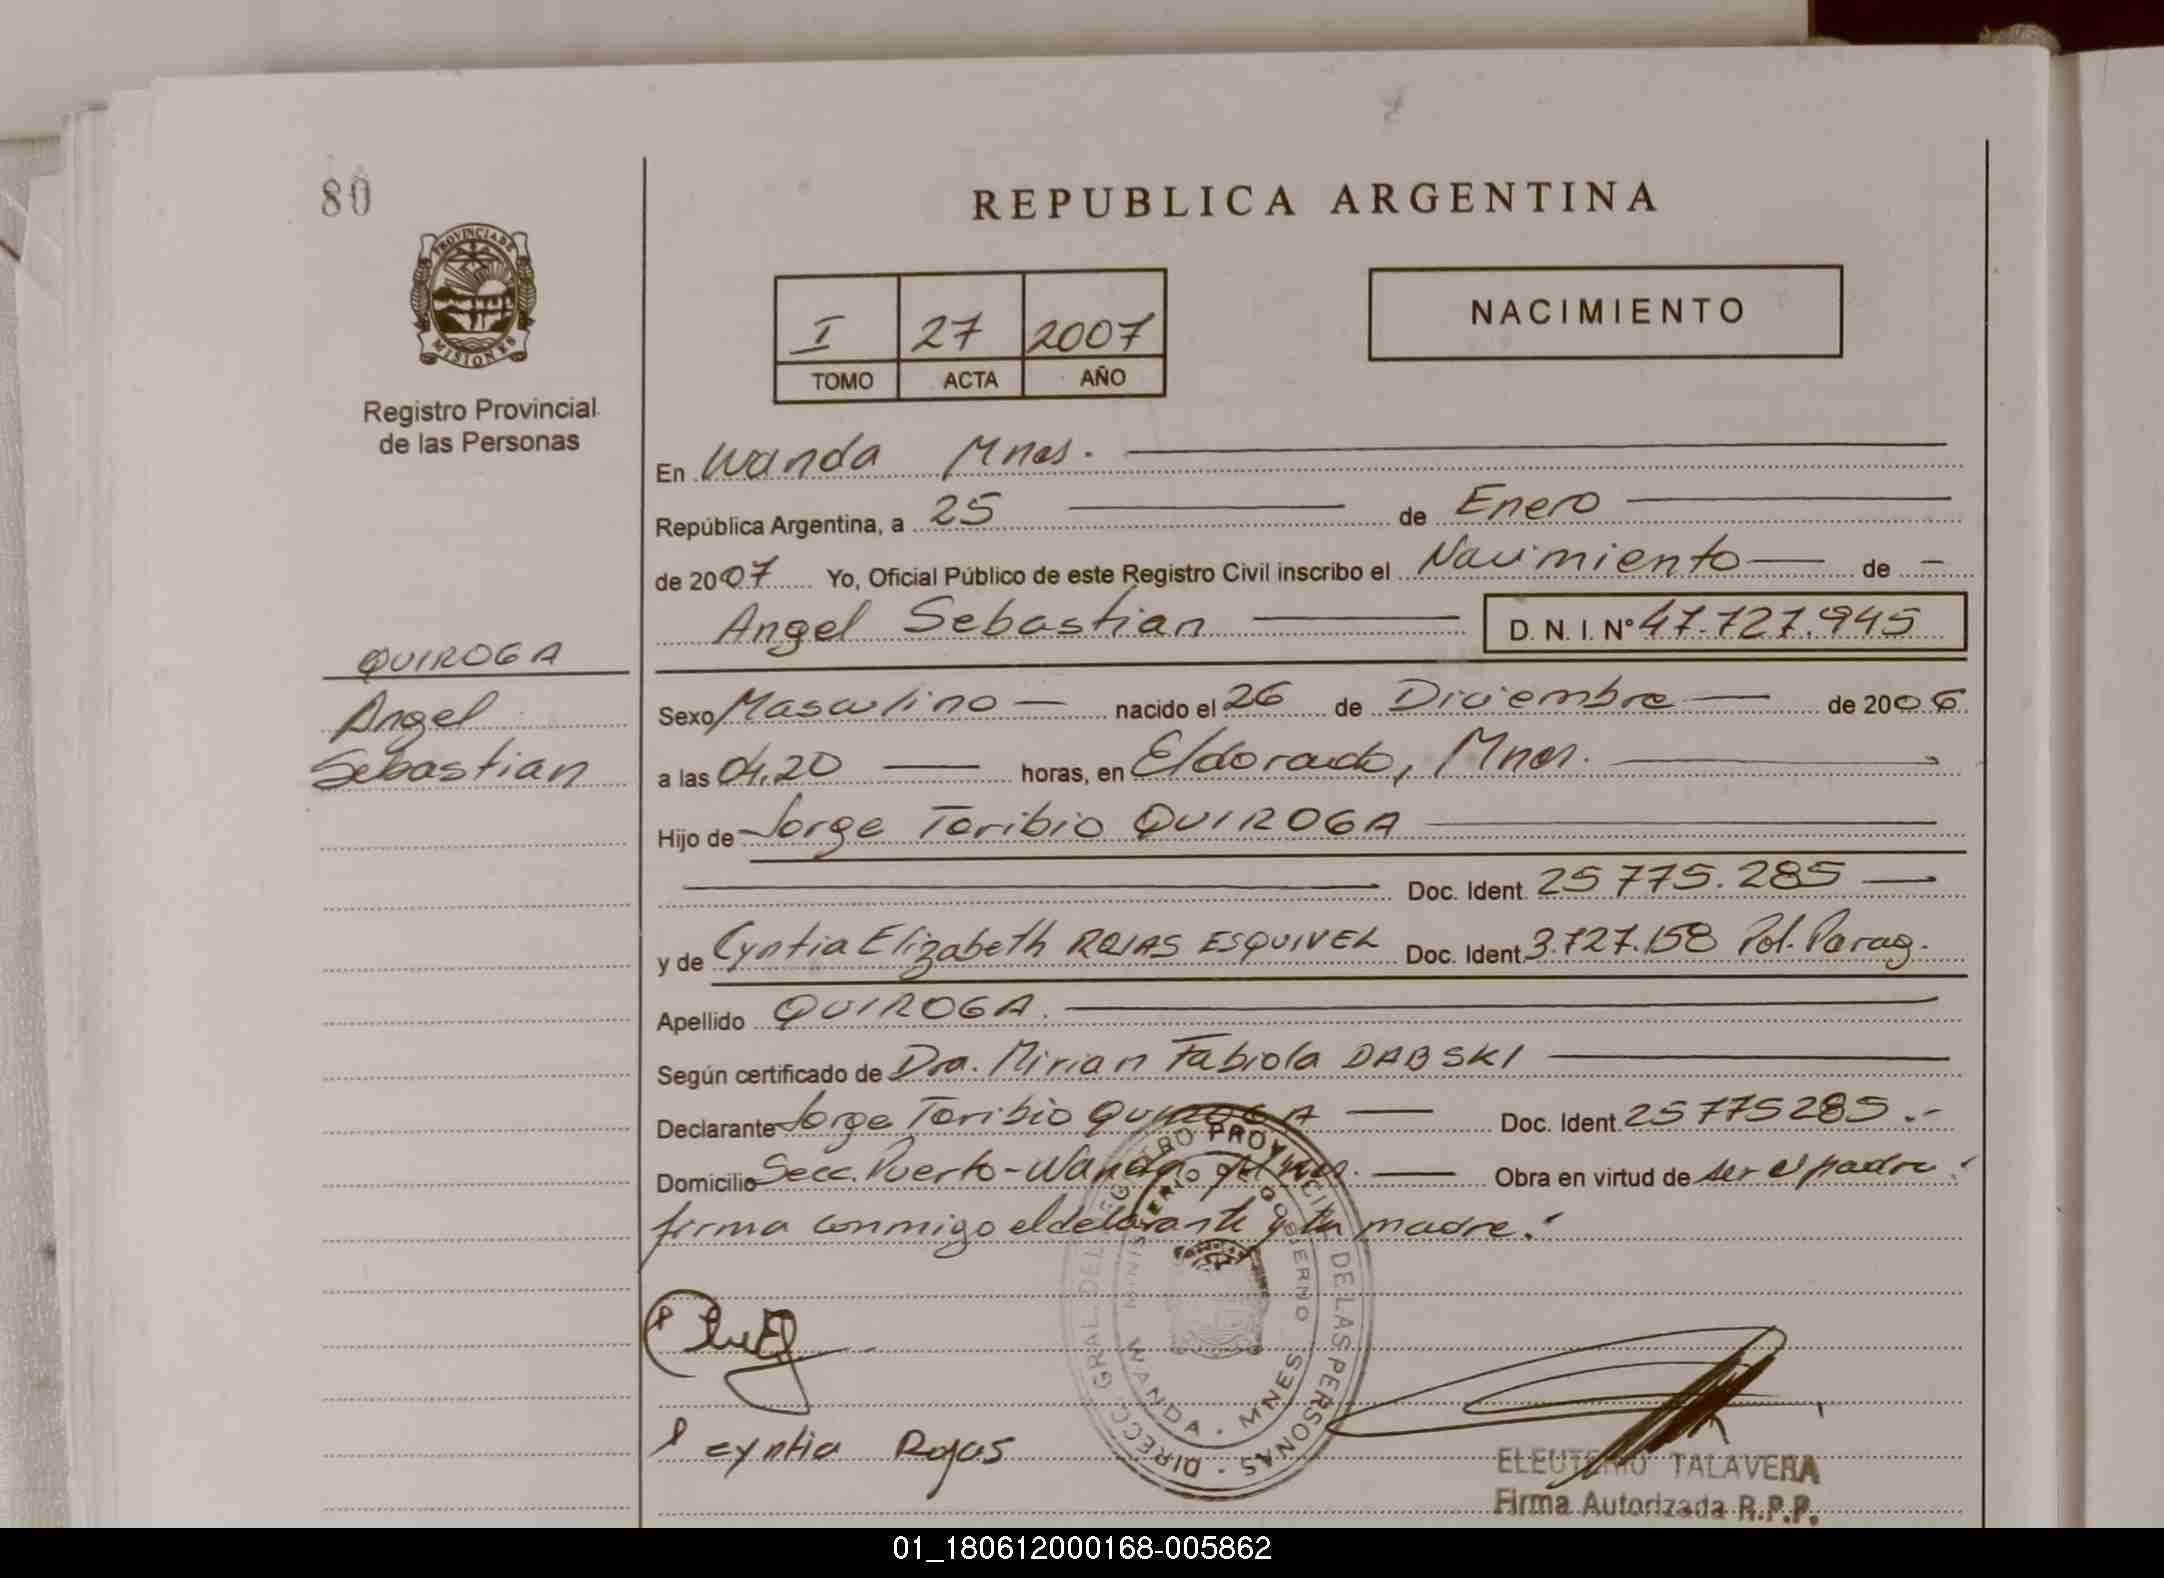 80
REPUBLICA ARGENTINA
PROVINCIA DE
MISIONES
Registro Provincial
de las Personas
I 27 2007
TOMO ACTA AÑO
NACIMIENTO
En Wanda Mnes.
República Argentina, a 25 de Enero
de 2007 Yo, Oficial Público de este Registro Civil inscribo el Nacimiento de
Angel Sebastian D. N. I. N° 47.727.945
QUIROGA
Angel
Sebastian
Sexo Masculino nacido el 26 de Diciembre de 2006
a las 04.20 horas, en Eldorado, Mnes.
Hijo de Jorge Toribio QUIROGA
Doc. Ident. 25775.285
y de Cyntia Elizabeth ROJAS ESQUIVEL Doc. Ident. 3.727.158 Pol. Parag.
Apellido QUIROGA.
Según certificado de Dra. Mirian Fabiola DABSKI
Declarante Jorge Toribio QUIROGA Doc. Ident. 25775285.-
Domicilio Secc. Puerto-Wanda Mnes. Obra en virtud de ser el padre
firma conmigo el declarante y la madre.
DIRECC. GRAL. DEL REGISTRO PROVINCIAL DE LAS PERSONAS
MINISTERIO DE GOBIERNO
WANDA - MNES
cyntia Rojas
ELEUTERIO TALAVERA
Firma Autorizada R.P.P.
01_180612000168-005862